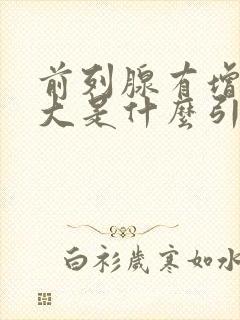 前列腺有增
大是什麼引
白衫歲寒如水